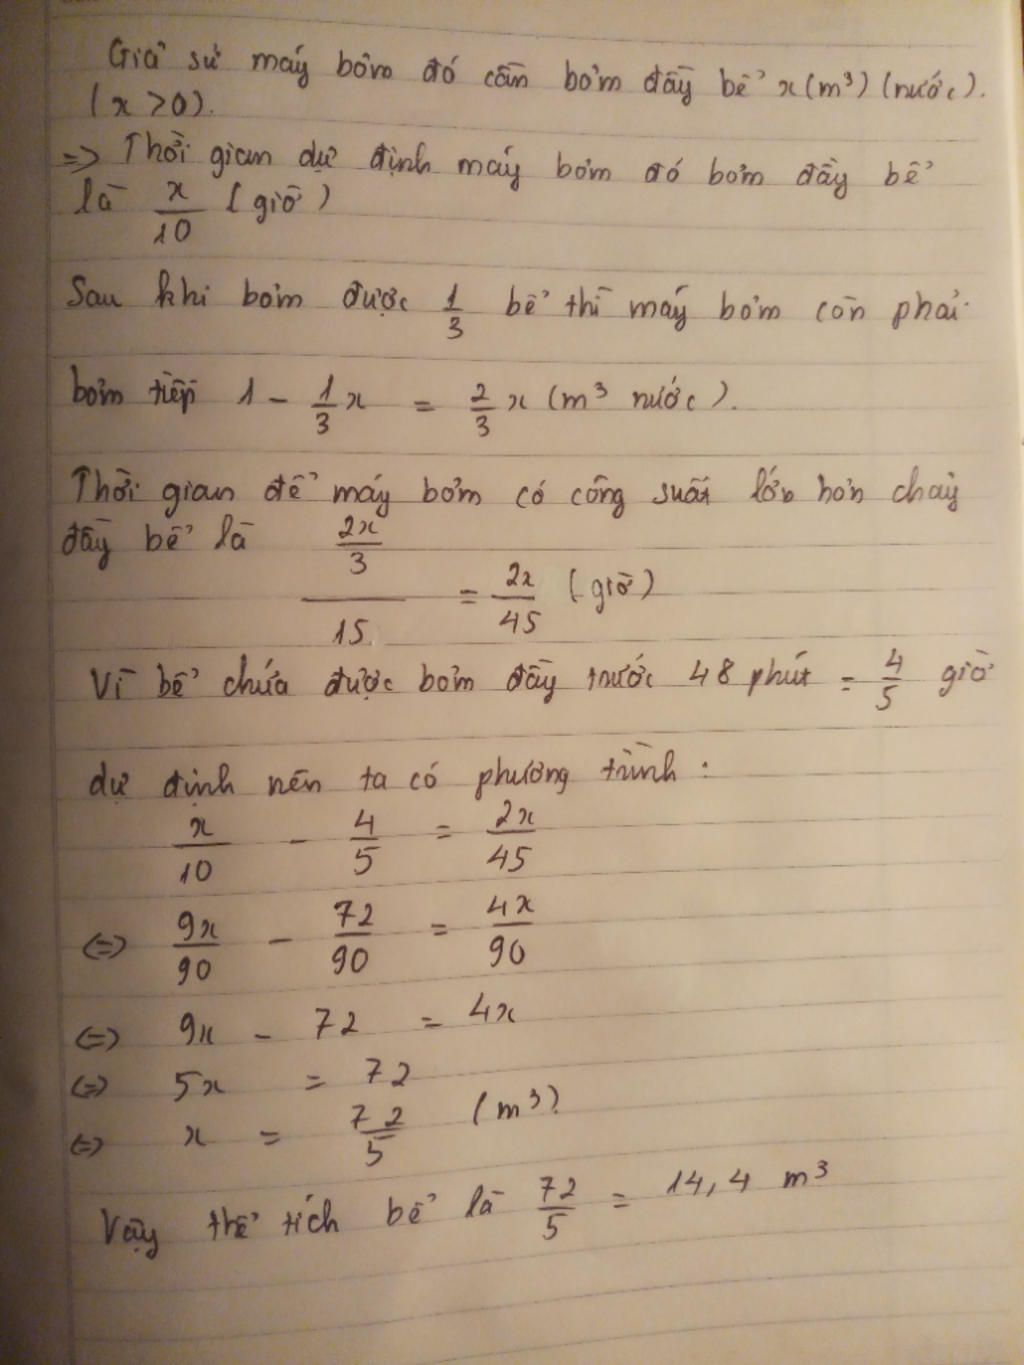 Giả sử máy bơm đó cần bơm đầy bể x (m³) (nước).
(x > 0).
=> Thời gian dự định máy bơm đó bơm đầy bể
là x/10 (giờ)
Sau khi bơm được 1/3 bể thì máy bơm còn phải
bơm tiếp 1 - 1/3 x = 2/3 x (m³ nước).
Thời gian để máy bơm có công suất lớn hơn chảy
đầy bể là (2x/3)/15 = 2x/45 (giờ)
Vì bể chứa được bơm đầy trước 48 phút = 4/5 giờ
dự định nên ta có phương trình :
x/10 - 4/5 = 2x/45
<=> 9x/90 - 72/90 = 4x/90
<=> 9x - 72 = 4x
<=> 5x = 72
<=> x = 72/5 (m³)
Vậy thể tích bể là 72/5 = 14,4 m³